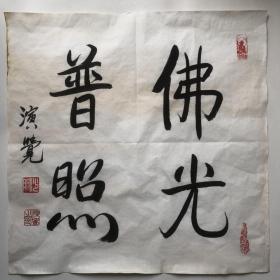 佛光
普照
演觉